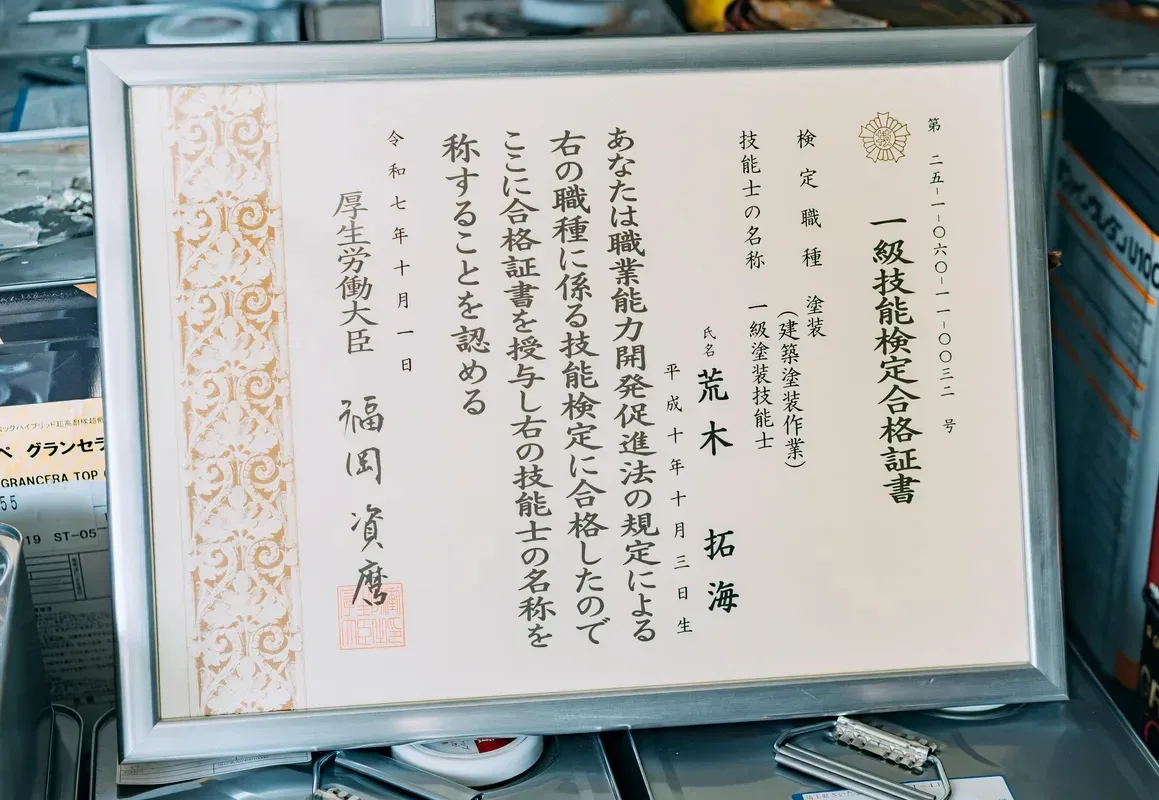 第 二五-一-〇六〇-一一-〇〇三二 号
一級技能検定合格証書
検定職種 塗装
(建築塗装作業)
技能士の名称 一級塗装技能士
氏名 荒木 拓海
平成十年十月三日生
あなたは職業能力開発促進法の規定による
右の職種に係る技能検定に合格したので
ここに合格証書を授与し右の技能士の名称を
称することを認める
令和七年十月一日
厚生労働大臣 福岡資麿
グランセラ
GRANCERA TOP
55
19 ST-05